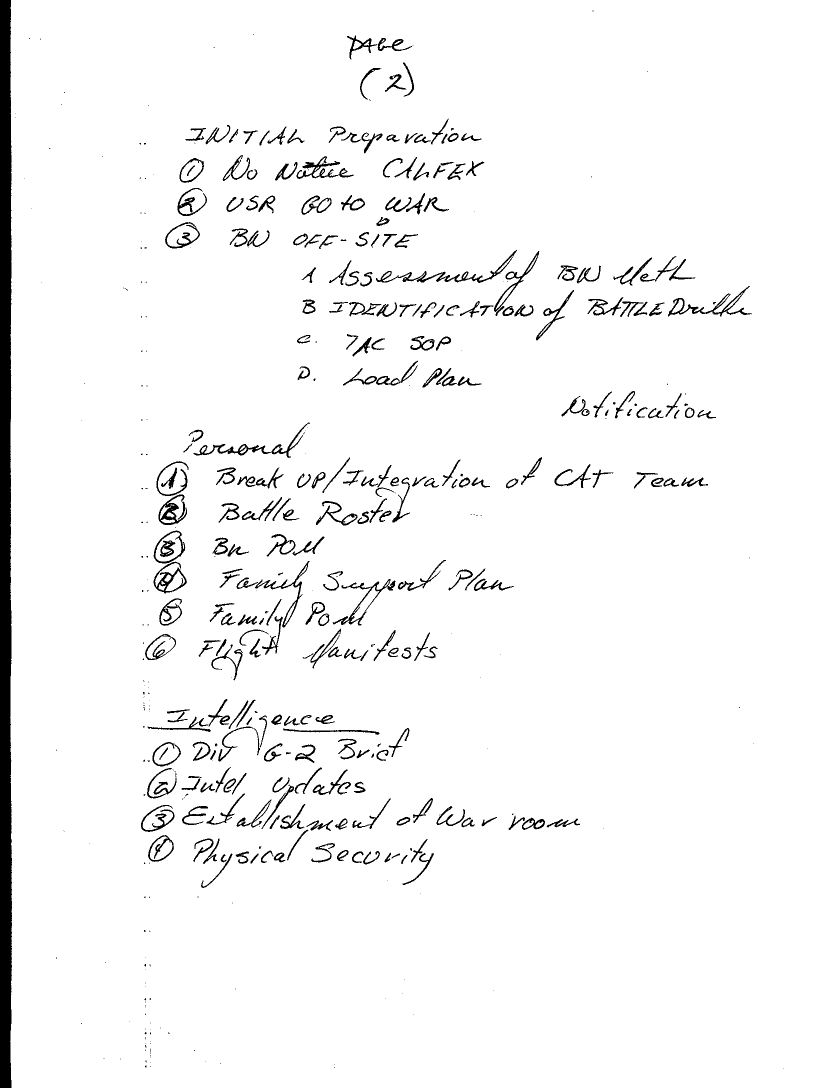 PAGE
(2)
INITIAL Preparation
① No Notice CALFEX
② USR GO to WAR
③ BN OFF-SITE
A Assessment of BN Metl
B IDENTIFICATION of BATTLE Drills
C. TAC SOP
D. Load Plan
Notification
Personal
① Break UP/Integration of CAT Team
② Battle Roster
③ Bn POM
④ Family Support Plan
⑤ Family Pom
⑥ Flight Manifests
Intelligence
① Div G-2 Brief
② Intel Updates
③ Establishment of War room
④ Physical Security